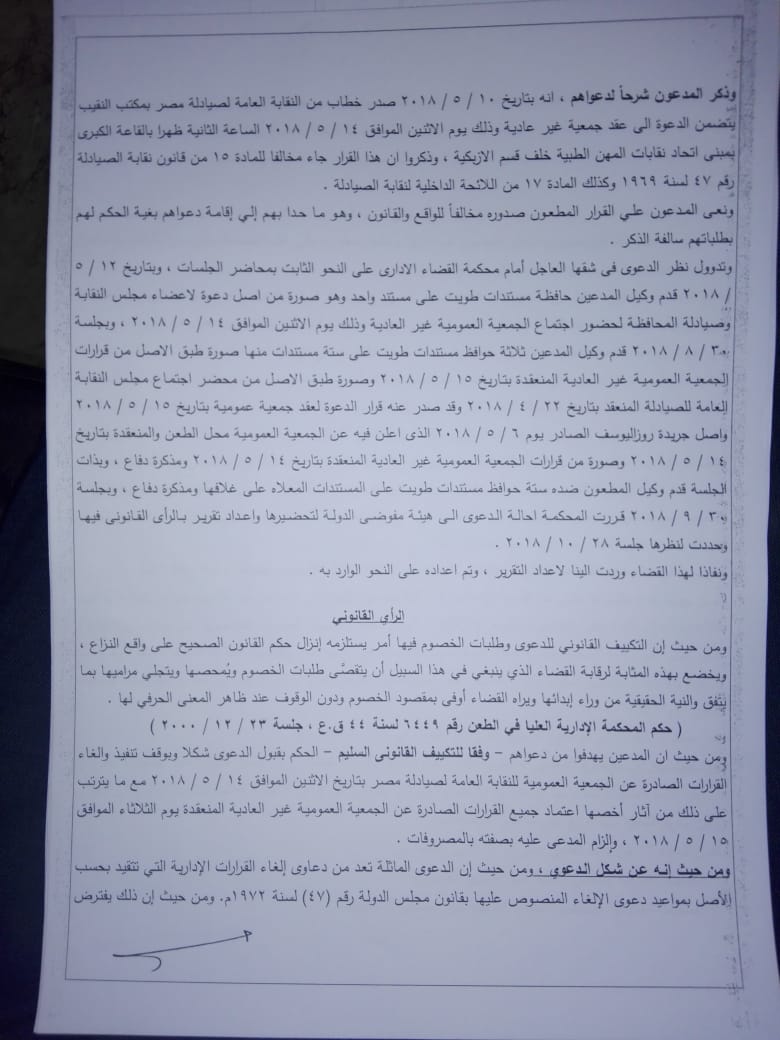 وذكر المدعون شرحاً لدعواهم ، انه بتاريخ ١٠ / ٥ / ٢٠١٨ صدر خطاب من النقابة العامة لصيادلة مصر بمكتب النقيب
يتضمن الدعوة الى عقد جمعية غير عادية وذلك يوم الاثنين الموافق ١٤ / ٥ / ٢٠١٨ الساعة الثانية ظهرا بالقاعة الكبرى
بمبنى اتحاد نقابات المهن الطبية خلف قسم الازبكية ، وذكروا ان هذا القرار جاء مخالفا للمادة ١٥ من قانون نقابة الصيادلة
رقم ٤٧ لسنة ١٩٦٩ وكذلك المادة ١٧ من اللائحة الداخلية لنقابة الصيادلة .
ونعى المدعون علي القرار المطعون صدوره مخالفاً للواقع والقانون ، وهو ما حدا بهم إلي إقامة دعواهم بغية الحكم لهم
بطلباتهم سالفة الذكر .
وتدوول نظر الدعوى فى شقها العاجل أمام محكمة القضاء الادارى على النحو الثابت بمحاضر الجلسات ، وبتاريخ ١٢ / ٥
/ ٢٠١٨ قدم وكيل المدعين حافظة مستندات طويت على مستند واحد وهو صورة من اصل دعوة لاعضاء مجلس النقابة
وصيادلة المحافظة لحضور اجتماع الجمعية العمومية غير العادية وذلك يوم الاثنين الموافق ١٤ / ٥ / ٢٠١٨ ، وبجلسة
٣٠ / ٨ / ٢٠١٨ قدم وكيل المدعين ثلاثة حوافظ مستندات طويت على ستة مستندات منها صورة طبق الاصل من قرارات
الجمعية العمومية غير العادية المنعقدة بتاريخ ١٥ / ٥ / ٢٠١٨ وصورة طبق الاصل من محضر اجتماع مجلس النقابة
العامة للصيادلة المنعقد بتاريخ ٢٢ / ٤ / ٢٠١٨ وقد صدر عنه قرار الدعوة لعقد جمعية عمومية بتاريخ ١٥ / ٥ / ٢٠١٨
واصل جريدة روزاليوسف الصادر يوم ٦ / ٥ / ٢٠١٨ الذى اعلن فيه عن الجمعية العمومية محل الطعن والمنعقدة بتاريخ
١٤ / ٥ / ٢٠١٨ وصورة من قرارات الجمعية العمومية غير العادية المنعقدة بتاريخ ١٤ / ٥ / ٢٠١٨ ومذكرة دفاع ، وبذات
الجلسة قدم وكيل المطعون ضده ستة حوافظ مستندات طويت على المستندات المعلاه على غلافها ومذكرة دفاع ، وبجلسة
٣٠ / ٩ / ٢٠١٨ قررت المحكمة احالة الدعوى الى هيئة مفوضى الدولة لتحضيرها واعداد تقرير بالرأى القانونى فيها
وحددت لنظرها جلسة ٢٨ / ١٠ / ٢٠١٨ .
ونفاذا لهذا القضاء وردت الينا لاعداد التقرير ، وتم اعداده على النحو الوارد به .
الرأي القانوني
ومن حيث إن التكييف القانوني للدعوى وطلبات الخصوم فيها أمر يستلزمه إنزال حكم القانون الصحيح على واقع النزاع ،
ويخضع بهذه المثابة لرقابة القضاء الذي ينبغي في هذا السبيل أن يتقصَّى طلبات الخصوم ويُمحصها ويتجلي مراميها بما
يتفق والنية الحقيقية من وراء إبدائها ويراه القضاء أوفى بمقصود الخصوم ودون الوقوف عند ظاهر المعنى الحرفي لها .
( حكم المحكمة الإدارية العليا في الطعن رقم ٦٤٤٩ لسنة ٤٤ ق.ع ، جلسة ٢٣ / ١٢ / ٢٠٠٠ )
ومن حيث ان المدعين يهدفوا من دعواهم – وفقا للتكييف القانونى السليم – الحكم بقبول الدعوى شكلا وبوقف تنفيذ والغاء
القرارات الصادرة عن الجمعية العمومية للنقابة العامة لصيادلة مصر بتاريخ الاثنين الموافق ١٤ / ٥ / ٢٠١٨ مع ما يترتب
على ذلك من آثار أخصها اعتماد جميع القرارات الصادرة عن الجمعية العمومية غير العادية المنعقدة يوم الثلاثاء الموافق
١٥ / ٥ / ٢٠١٨ ، والزام المدعى عليه بصفته بالمصروفات .
ومن حيث إنه عن شكل الدعوي ، ومن حيث إن الدعوى الماثلة تعد من دعاوى إلغاء القرارات الإدارية التي تتقيد بحسب
الأصل بمواعيد دعوى الإلغاء المنصوص عليها بقانون مجلس الدولة رقم (٤٧) لسنة ١٩٧٢م. ومن حيث إن ذلك يفترض